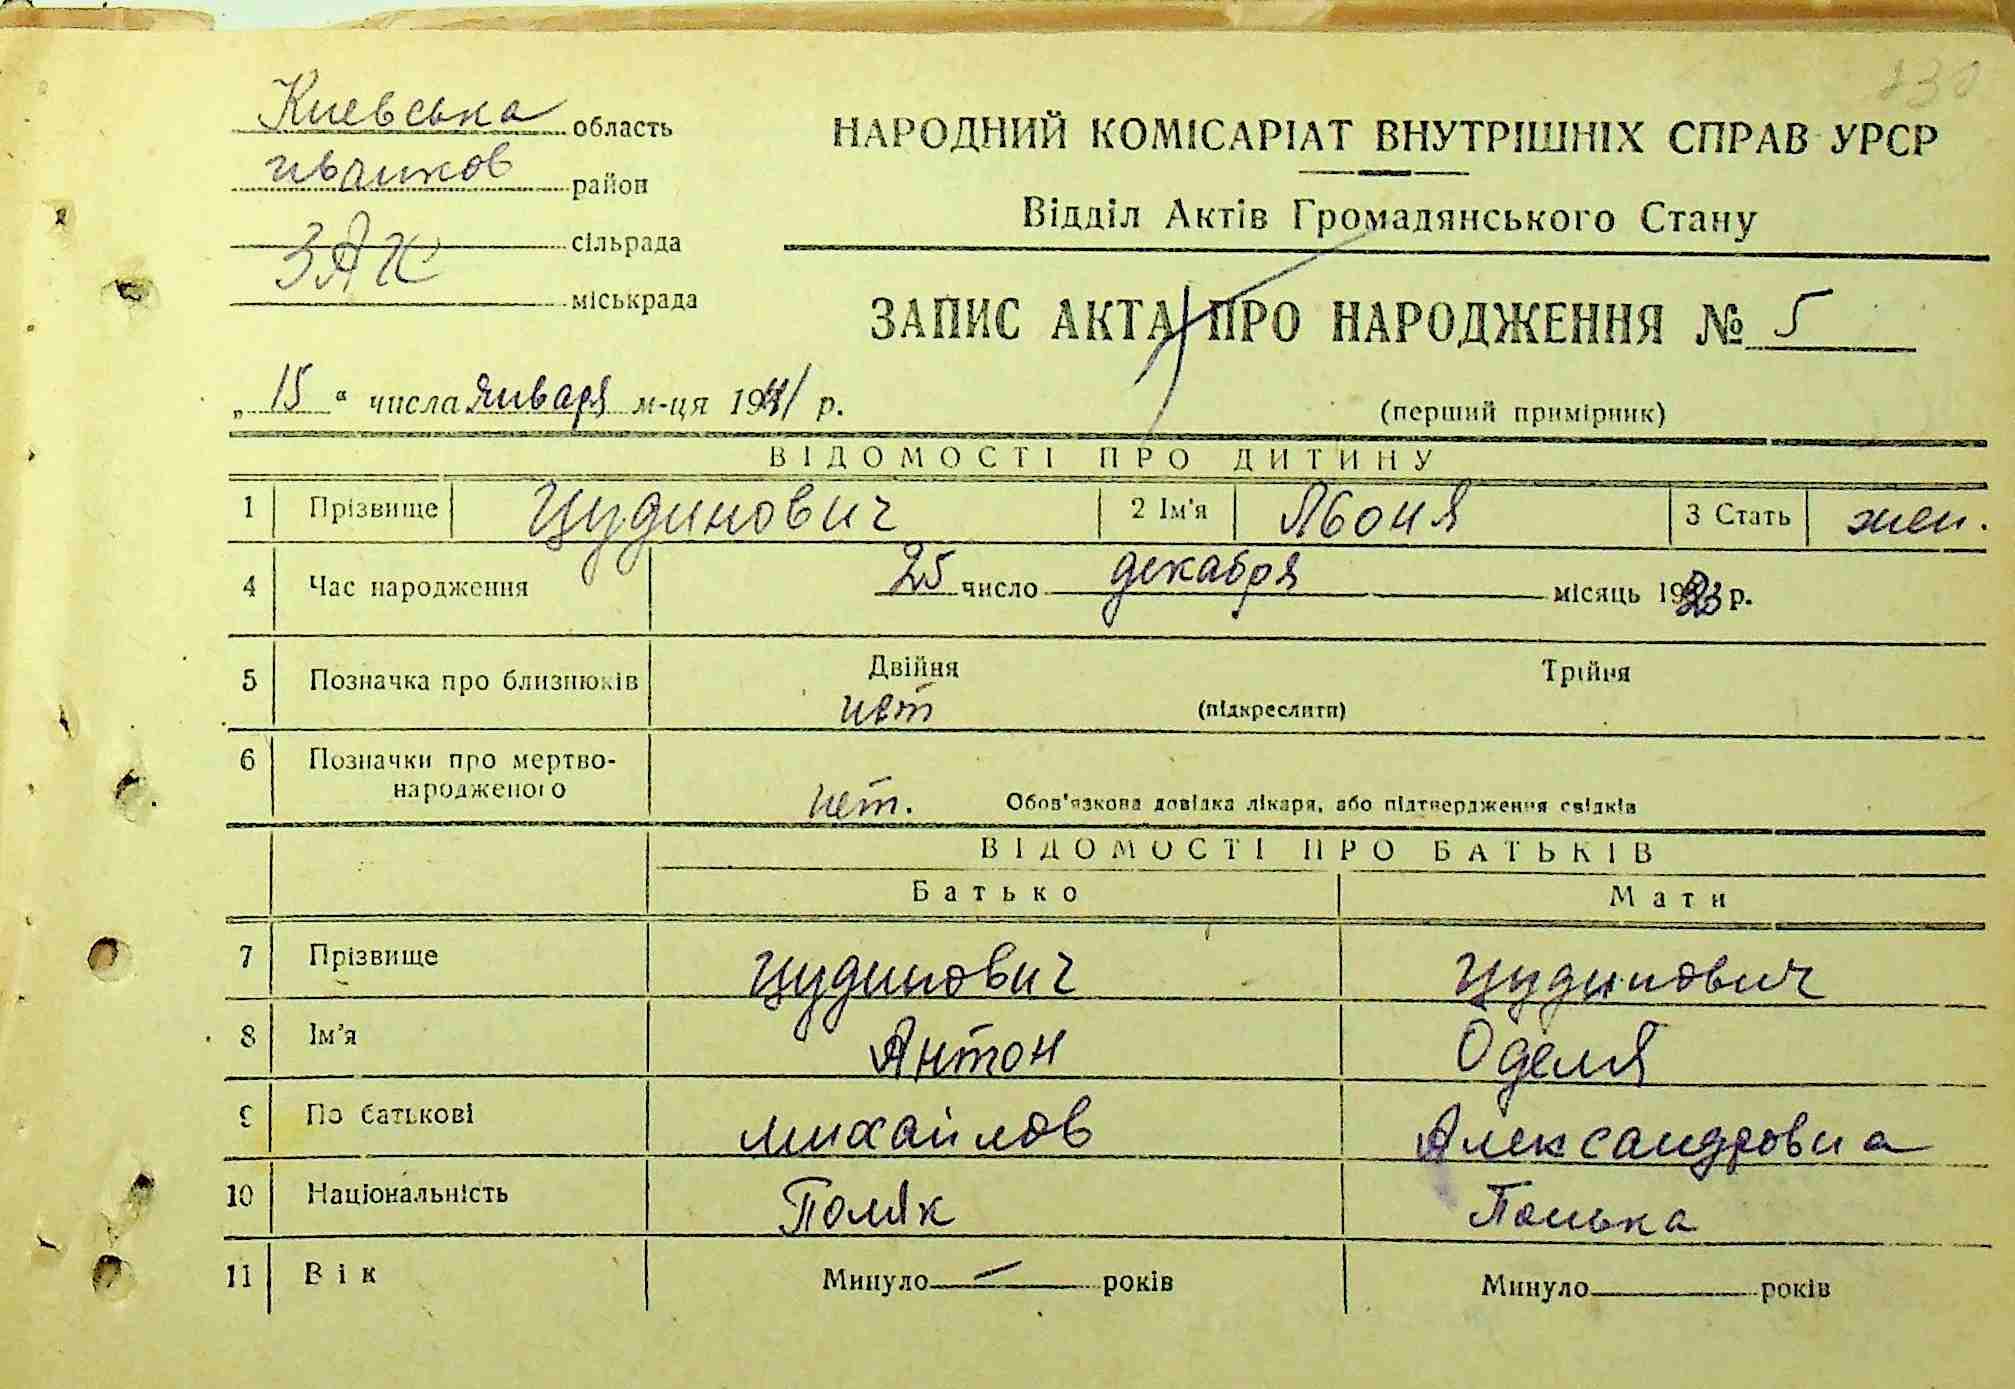 130
Киевська область
иванков район
ЗАГС сільрада
міськрада
НАРОДНИЙ КОМІСАРІАТ ВНУТРІШНІХ СПРАВ УРСР
Відділ Актів Громадянського Стану
ЗАПИС АКТА ПРО НАРОДЖЕННЯ № 5
„ 15 “ числа января м-ця 1941 р.
(перший примірник)
ВІДОМОСТІ ПРО ДИТИНУ
1 Прізвище Цудинович 2 Ім'я Ябоня 3 Стать жен.
4 Час народження 25 число декабря місяць 1923 р.
5 Позначка про близнюків Двійня Трійня
нет (підкреслити)
6 Позначки про мертво-
народженого нет. Обов'язкова довідка лікаря, або підтвердження свідків
ВІДОМОСТІ ПРО БАТЬКІВ
Батько Мати
7 Прізвище Цудинович Цудинович
8 Ім'я Антон Оделя
9 По батькові михайлов Александровна
10 Національність Поляк Полька
11 Вік Минуло — років Минуло років